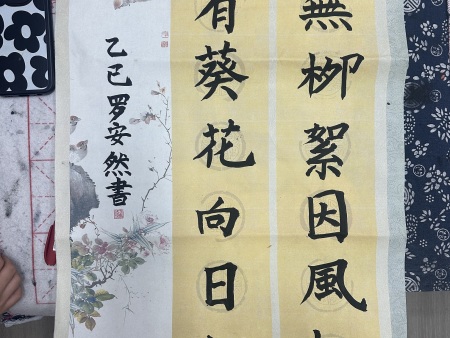 無柳絮因風
有葵花向日
乙巳罗安然書